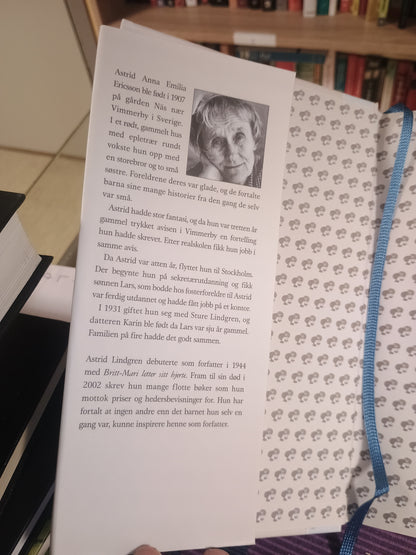 Astrid Anna Emilia
Ericsson ble født i 1907
på gården Näs nær
Vimmerby i Sverige.
I et rødt, gammelt hus
med epletrær rundt
vokste hun opp med
en storebror og to små
søstre. Foreldrene deres var glade, og de fortalte
barna sine mange historier fra den gang de selv
var små.
Astrid hadde stor fantasi, og da hun var tretten år
gammel trykket avisen i Vimmerby en fortelling
hun hadde skrevet. Etter realskolen fikk hun jobb i
samme avis.
Da Astrid var atten år, flyttet hun til Stockholm.
Der begynte hun på sekretærutdanning og fikk
sønnen Lars, som bodde hos fosterforeldre til Astrid
var ferdig utdannet og hadde fått jobb på et kontor.
I 1931 giftet hun seg med Sture Lindgren, og
datteren Karin ble født da Lars var sju år gammel.
Familien på fire hadde det godt sammen.
Astrid Lindgren debuterte som forfatter i 1944
med Britt-Mari letter sitt hjerte. Fram til sin død i
2002 skrev hun mange flotte bøker som hun
mottok priser og hedersbevisninger for. Hun har
fortalt at ingen andre enn det barnet hun selv en
gang var, kunne inspirere henne som forfatter.